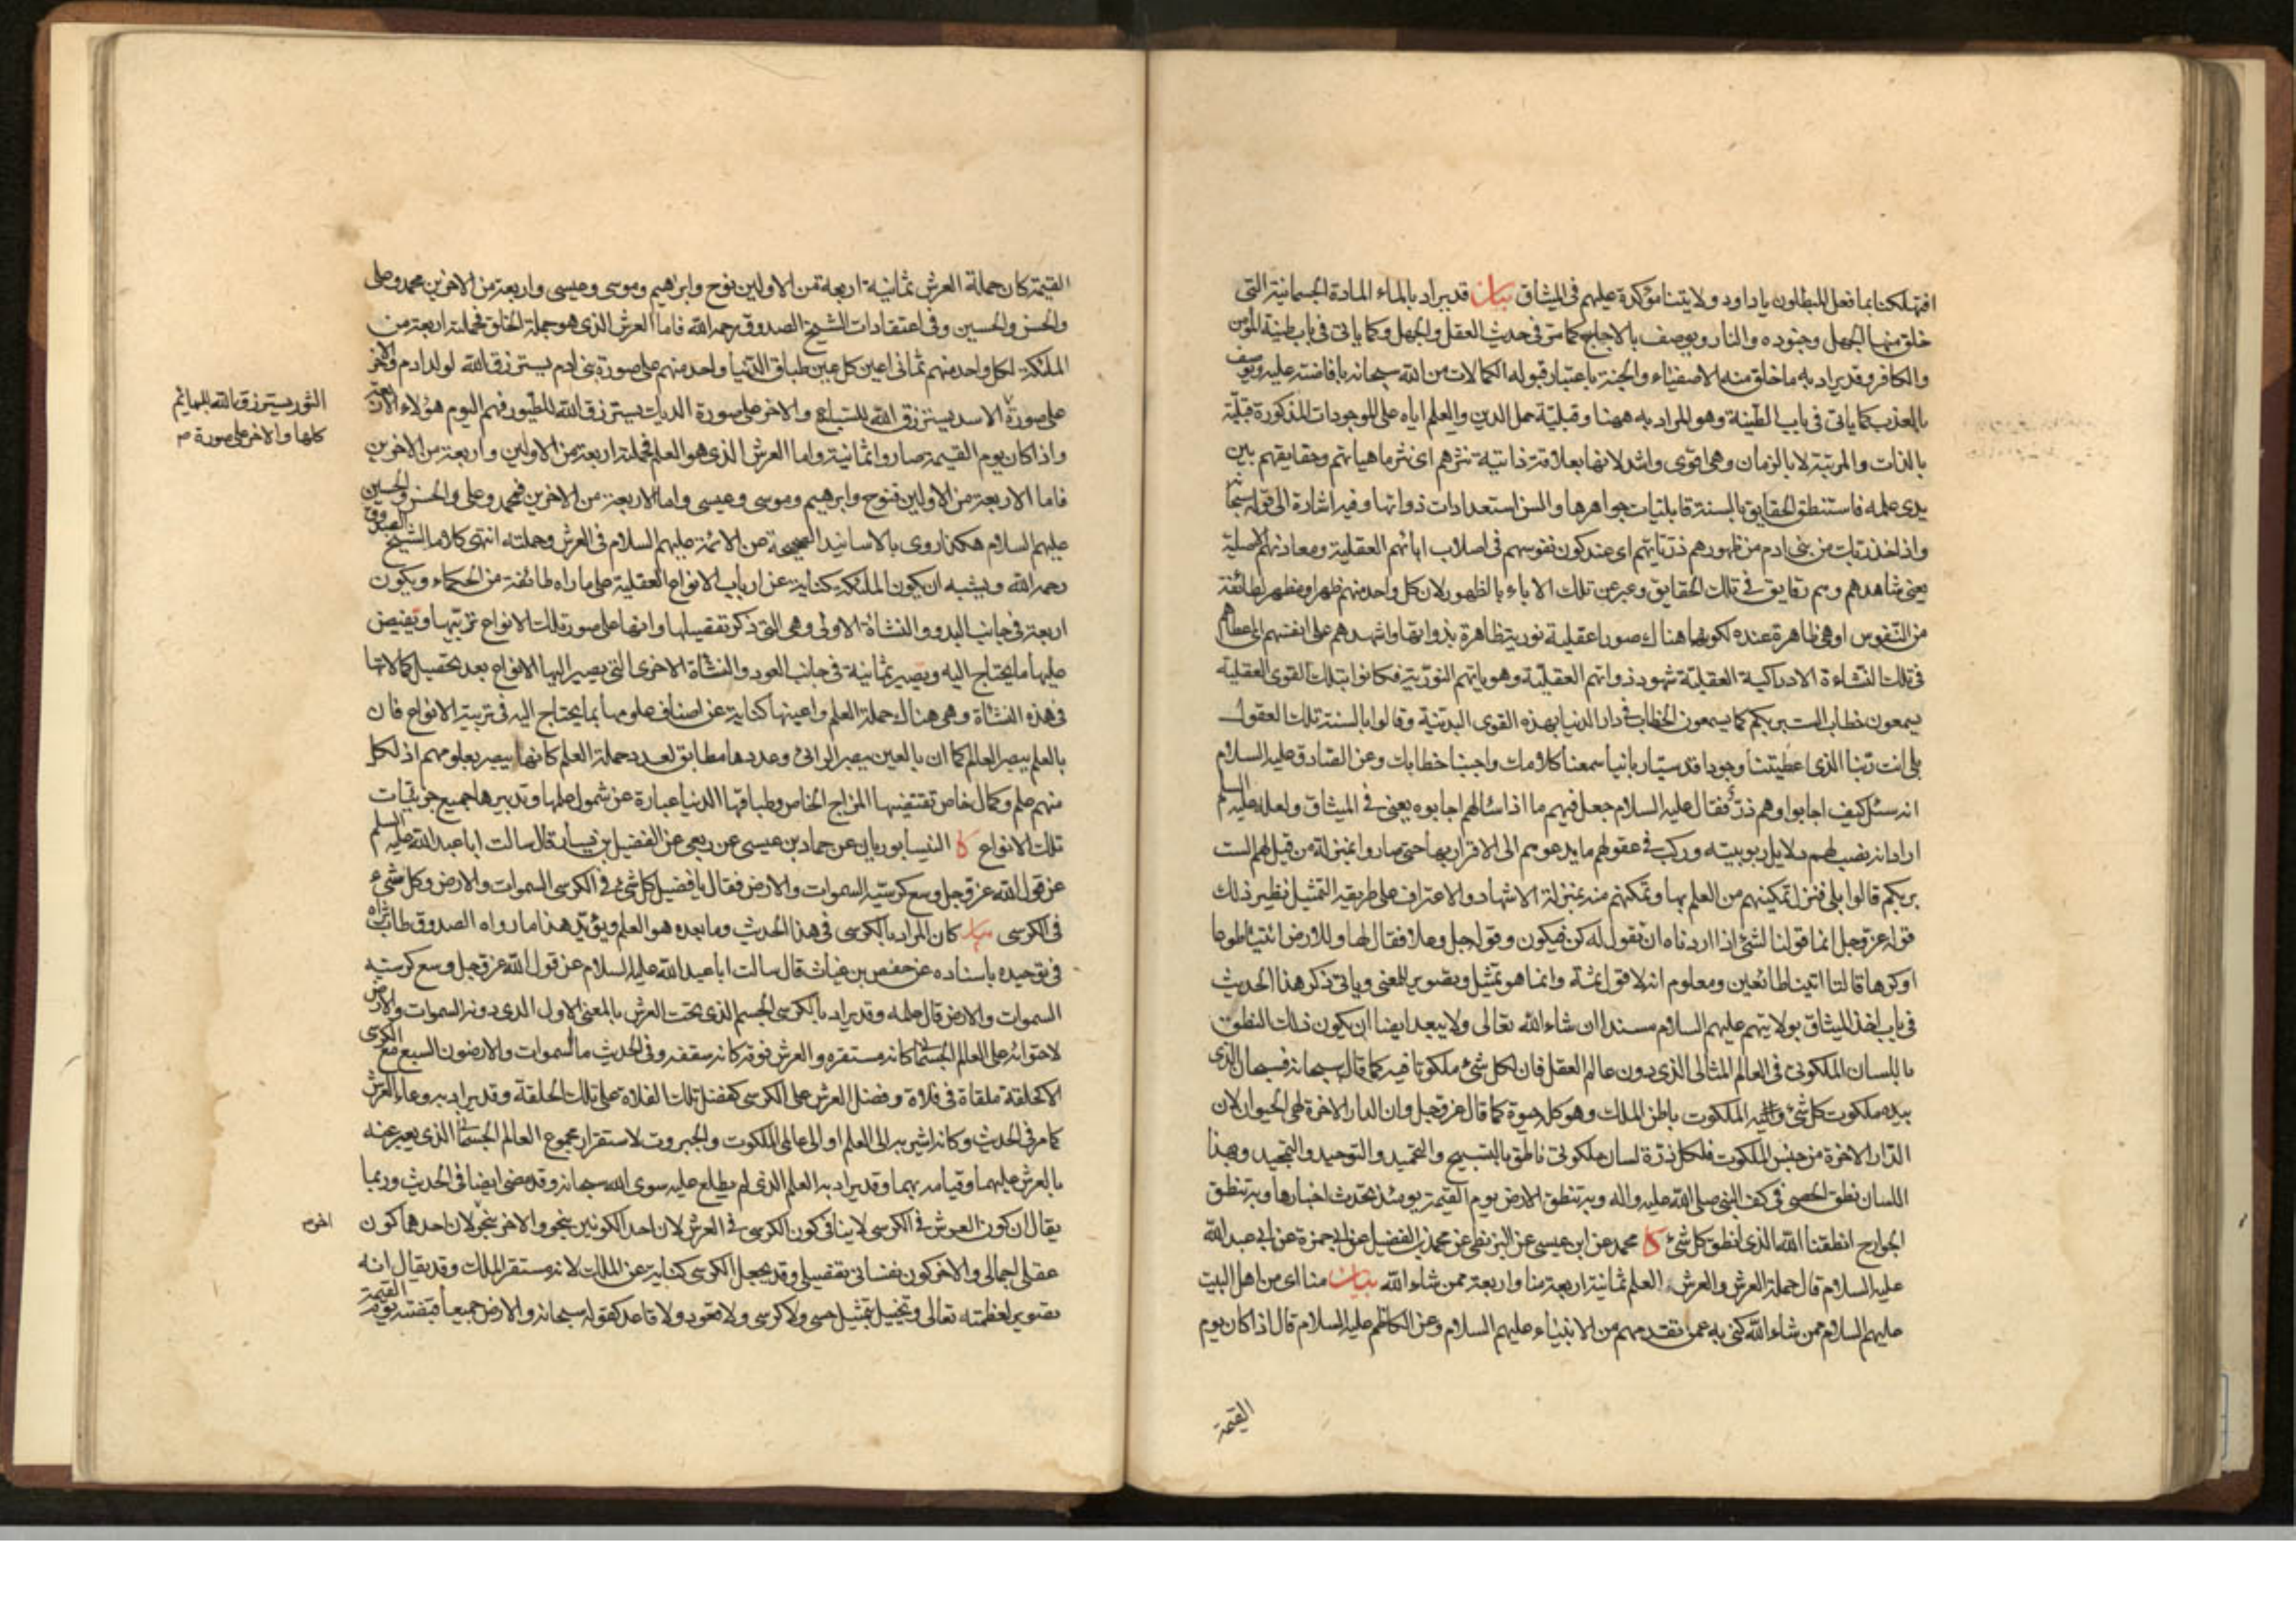 افتهلكنا بما فعل المبطلون يا داود ولايتنا مؤكدة عليهم فى الميثاق بيان قد يراد بالماء المادة الجسمانية التى
خلق منها الجهل وجنوده والنار ويوصف بالاجاج كما مر فى حديث العقل والجهل وكما ياتى فى باب طينة المؤمن
والكافر وقد يراد به ما خلق منه الاصفياء والجنة باعتبار قبوله الكمالات من الله سبحانه بافاضته عليه ويوصف
بالعذب كما ياتى فى باب الطينة وهو المراد به ههنا وقبلية حمل الدين والعلم اياه على الموجودات المذكورة قبلية
بالذات والمرتبة لا بالزمان وهى اقوى واشد لانها بعلاقة ذاتية نثرهم اى نثر ماهياتهم وحقايقهم بين
يدى علمه فاستنطق الحقايق بالسنة قابليات جواهرها والسن استعدادات ذواتها وفيه اشارة الى قوله سبحانه
واذ اخذ ربك من بنى ادم من ظهورهم ذرياتهم اى عند كون نفوسهم فى اصلاب ابائهم العقلية ومعادنهم الاصلية
يعنى شاهدهم وهم رقايق فى تلك الحقايق وعبر عن تلك الاباء بالظهور لان كل واحد منهم ظهر او مظهر لطائفة
من النفوس او هى ظاهرة عنده لكونها هناك صورا عقلية نورية ظاهرة بذواتها واشهدهم على انفسهم اى اعطاهم
فى تلك النشاءة الادراكية العقلية شهود ذواتهم العقلية وهوياتهم النورية فكانوا بتلك القوى العقلية
يسمعون خطاب الست بربكم كما يسمعون الخطاب فى دار الدنيا بهذه القوى البدنية وقالوا بالسنة تلك العقول
بلى انت ربنا الذى اعطيتنا وجودا قدسيا ربانيا سمعنا كلامك واجبنا خطابك وعن الصادق عليه السلام
انه سئل كيف اجابوا وهم ذر فقال عليه السلام جعل فيهم ما اذا سالهم اجابوه يعنى فى الميثاق ولعله عليه السلم
اراد انه نصب لهم دلايل ربوبيته وركب فى عقولهم ما يدعوهم الى الاقرار بها حتى صاروا بمنزلة من قيل لهم الست
بربكم قالوا بلى فنزل تمكينهم من العلم بها وتمكنهم منه بمنزلة الاشهاد والاعتراف على طريقة التمثيل نظير ذلك
قوله عز وجل انما قولنا لشئ اذا اردناه ان نقول له كن فيكون وقوله جل وعلا فقال لها وللارض ائتيا طوعا
او كرها قالتا اتينا طائعين ومعلوم انه لا قول ثمة وانما هو تمثيل وتصوير للمعنى وياتى ذكر هذا الحديث
فى باب اخذ الميثاق بولايتهم عليهم السلام مسندا ان شاء الله تعالى ولا يبعد ايضا ان يكون ذلك النطق
باللسان الملكوتى فى العالم المثالى الذى دون عالم العقل فان لكل شئ ملكوتا فيه كما قال سبحانه فسبحان الذى
بيده ملكوت كل شئ واليه الملكوت باطن الملك وهو كله حيوة كما قال عز وجل وان الدار الاخرة لهى الحيوان لان
الدار الاخرة من جنس الملكوت فلكل ذرة لسان ملكوتى ناطق بالتسبيح والتحميد والتوحيد والتمجيد وبهذا
اللسان نطق الحصى فى كف النبى صلى الله عليه واله وبه تنطق الارض يوم القيمة يومئذ تحدث اخبارها وبه تنطق
الجوارح انطقنا الله الذى انطق كل شئ كا محمد عن ابن عيسى عن البزنطى عن محمد بن الفضيل عن ابى حمزة عن ابى عبد الله
عليه السلام قال حملة العرش والعرش العلم ثمانية اربعة منا واربعة ممن شاء الله بيان منا اى من اهل البيت
عليهم السلام ممن شاء الله كنى به عمن تقدمهم من الانبياء عليهم السلام وعن الكاظم عليه السلام قال اذا كان يوم
القيمة
القيمة كان حملة العرش ثمانية اربعة من الاولين نوح وابراهيم وموسى وعيسى واربعة من الاخرين محمد وعلى
والحسن والحسين وفى اعتقادات الشيخ الصدوق رحمه الله فاما العرش الذى هو جملة الخلق فحملته اربعة من
الملئكة لكل واحد منهم ثمانى اعين كل عين طباق الدنيا واحد منهم على صورة بنى ادم يسترزق الله لولد ادم والاخر
على صورة الاسد يسترزق الله للسباع والاخر على صورة الديك يسترزق الله للطيور فهم اليوم هؤلاء الاربعة
الثور يسترزق الله للبهائم
كلها والاخر على صورة
واذا كان يوم القيمة صاروا ثمانية واما العرش الذى هو العلم فحملته اربعة من الاولين واربعة من الاخرين
فاما الاربعة من الاولين فنوح وابرهيم وموسى وعيسى واما الاربعة من الاخرين فمحمد وعلى والحسن والحسين
عليهم السلام هكذا روى بالاسانيد الصحيحة عن الائمة عليهم السلام فى العرش وحملته انتهى كلام الشيخ الصدوق
رحمه الله ويشبه ان يكون الملئكة كناية عن ارباب الانواع العقلية على ما راه طائفة من الحكماء ويكون
اربعة فى جانب البدو والنشاة الاولى وهى التى ذكر تفصيلها وانها على صور تلك الانواع تربيها وتفيض
عليها ما يحتاج اليه وتصير ثمانية فى جانب العود والنشاة الاخرى التى يصير اليها الانواع بعد تحصيل كمالاتها
فى هذه النشاة وهى هناك حملة العلم واعينها كناية عن اصناف علومها بما يحتاج اليه فى تربية الانواع فان
بالعلم يبصر العالم كما ان بالعين يبصر الرائى وعددها مطابق لعدد حملة العلم كانها يبصر بعلومهم اذ لكل
منهم علم وكمال خاص تقتضيها المزاج الخاص وطباقها الدنيا عبارة عن شمول علمها وتدبيرها جميع جزئيات
تلك الانواع كا النيسابوريان عن حماد بن عيسى عن ربعى عن الفضيل بن يسار قال سالت ابا عبد الله عليه السلم
عن قول الله عز وجل وسع كرسيه السموات والارض فقال يا فضيل كل شئ فى الكرسى السموات والارض وكل شئ
فى الكرسى بيان كان المراد بالكرسى فى هذا الحديث وما بعده هو العلم ويؤيد هذا ما رواه الصدوق طاب ثراه
فى توحيده باسناده عن حفص بن غياث قال سالت ابا عبد الله عليه السلام عن قول الله عز وجل وسع كرسيه
السموات والارض قال علمه وقد يراد بالكرسى الجسم الذى تحت العرش بالمعنى الاول الذى دونه السموات والارض
لاحتوائه على العالم الجسمانى كانه مستقره والعرش فوقه كانه سقفه وفى الحديث ما السموات والارضون السبع مع الكرسى
الا كحلقة ملقاة فى فلاة وفضل العرش على الكرسى كفضل تلك الفلاة على تلك الحلقة وقد يراد به وعاء العرش
كما مر فى الحديث وكانه اشير به الى العلم او الى عالمى الملكوت والجبروت لاستقرار مجموع العالم الجسمانى الذى يعبر عنه
بالعرش عليهما وقيامه بهما وقد يراد به العلم الذى لم يطلع عليه سوى الله سبحانه وقد مضى ايضا فى الحديث وربما
يقال ان كون العرش فى الكرسى لا ينافى كون الكرسى فى العرش لان احد الكونين بنحو والاخر بنحو لان احدهما كون
عقلى اجمالى والاخر كون نفسانى تفصيلى وقد يجعل الكرسى كناية عن الملك لانه مستقر الملك وقد يقال انه
تصوير لعظمته تعالى وتخييل بتمثيل حسى ولا كرسى ولا قعود ولا قاعد كقوله سبحانه والارض جميعا قبضته يوم القيمة